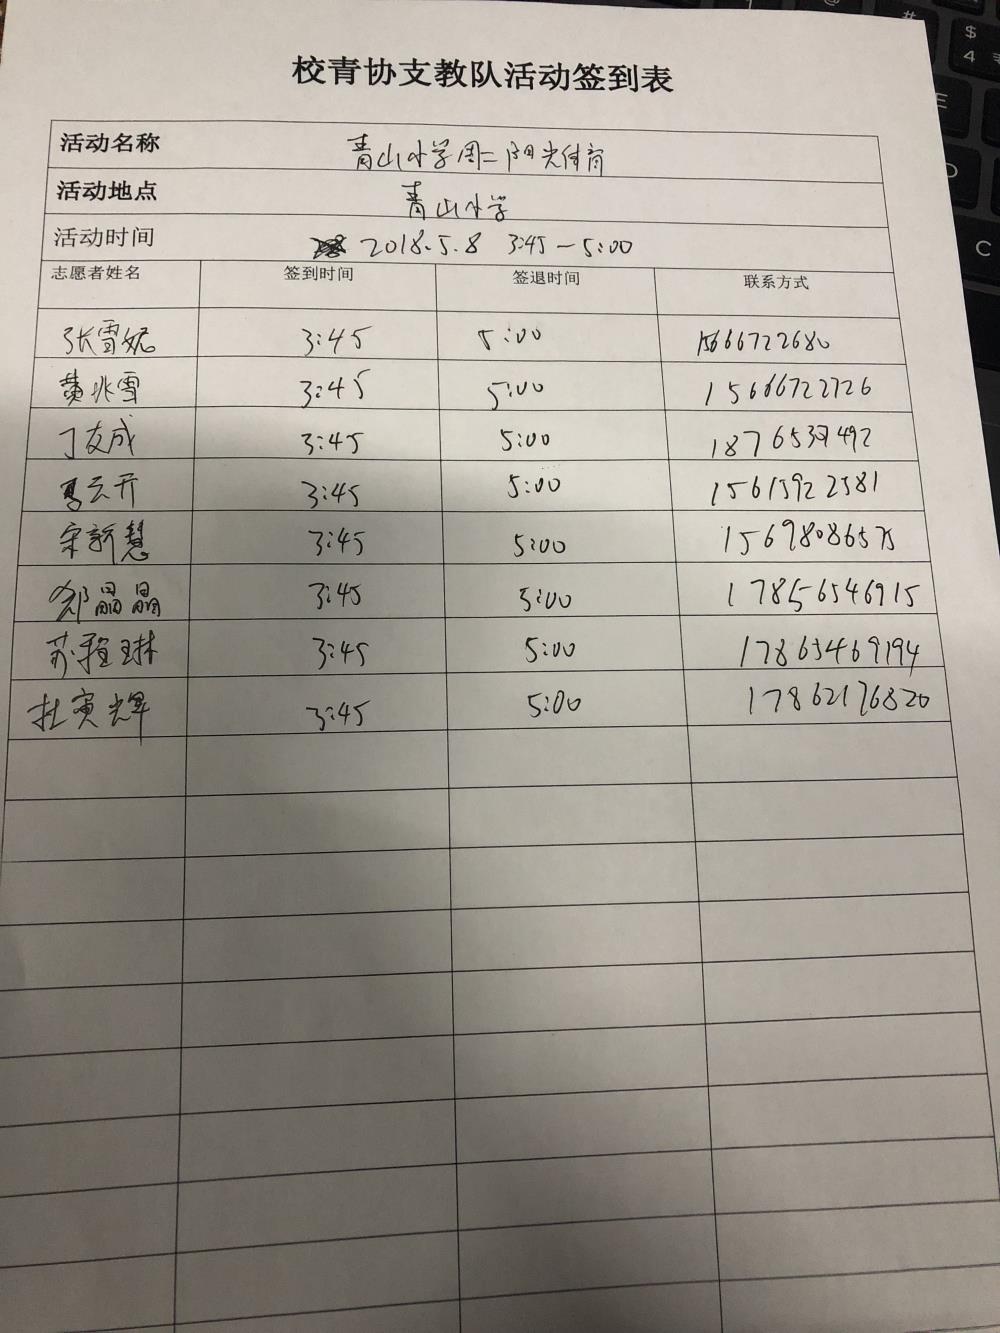 校青协支教队活动签到表
活动名称 青山小学周二阳光体育
活动地点 青山小学
活动时间 2018.5.8 3:45-5:00
志愿者姓名 签到时间 签退时间 联系方式
张雪妮 3:45 5:00 15666722680
黄兆雪 3:45 5:00 15666722726
丁友成 3:45 5:00
马云开 3:45 5:00 15615922581
宋新慧 3:45 5:00 15698086575
郑晶晶 3:45 5:00 17856546915
苏雅琳 3:45 5:00 17865469194
杜寅辉 3:45 5:00 17862176820